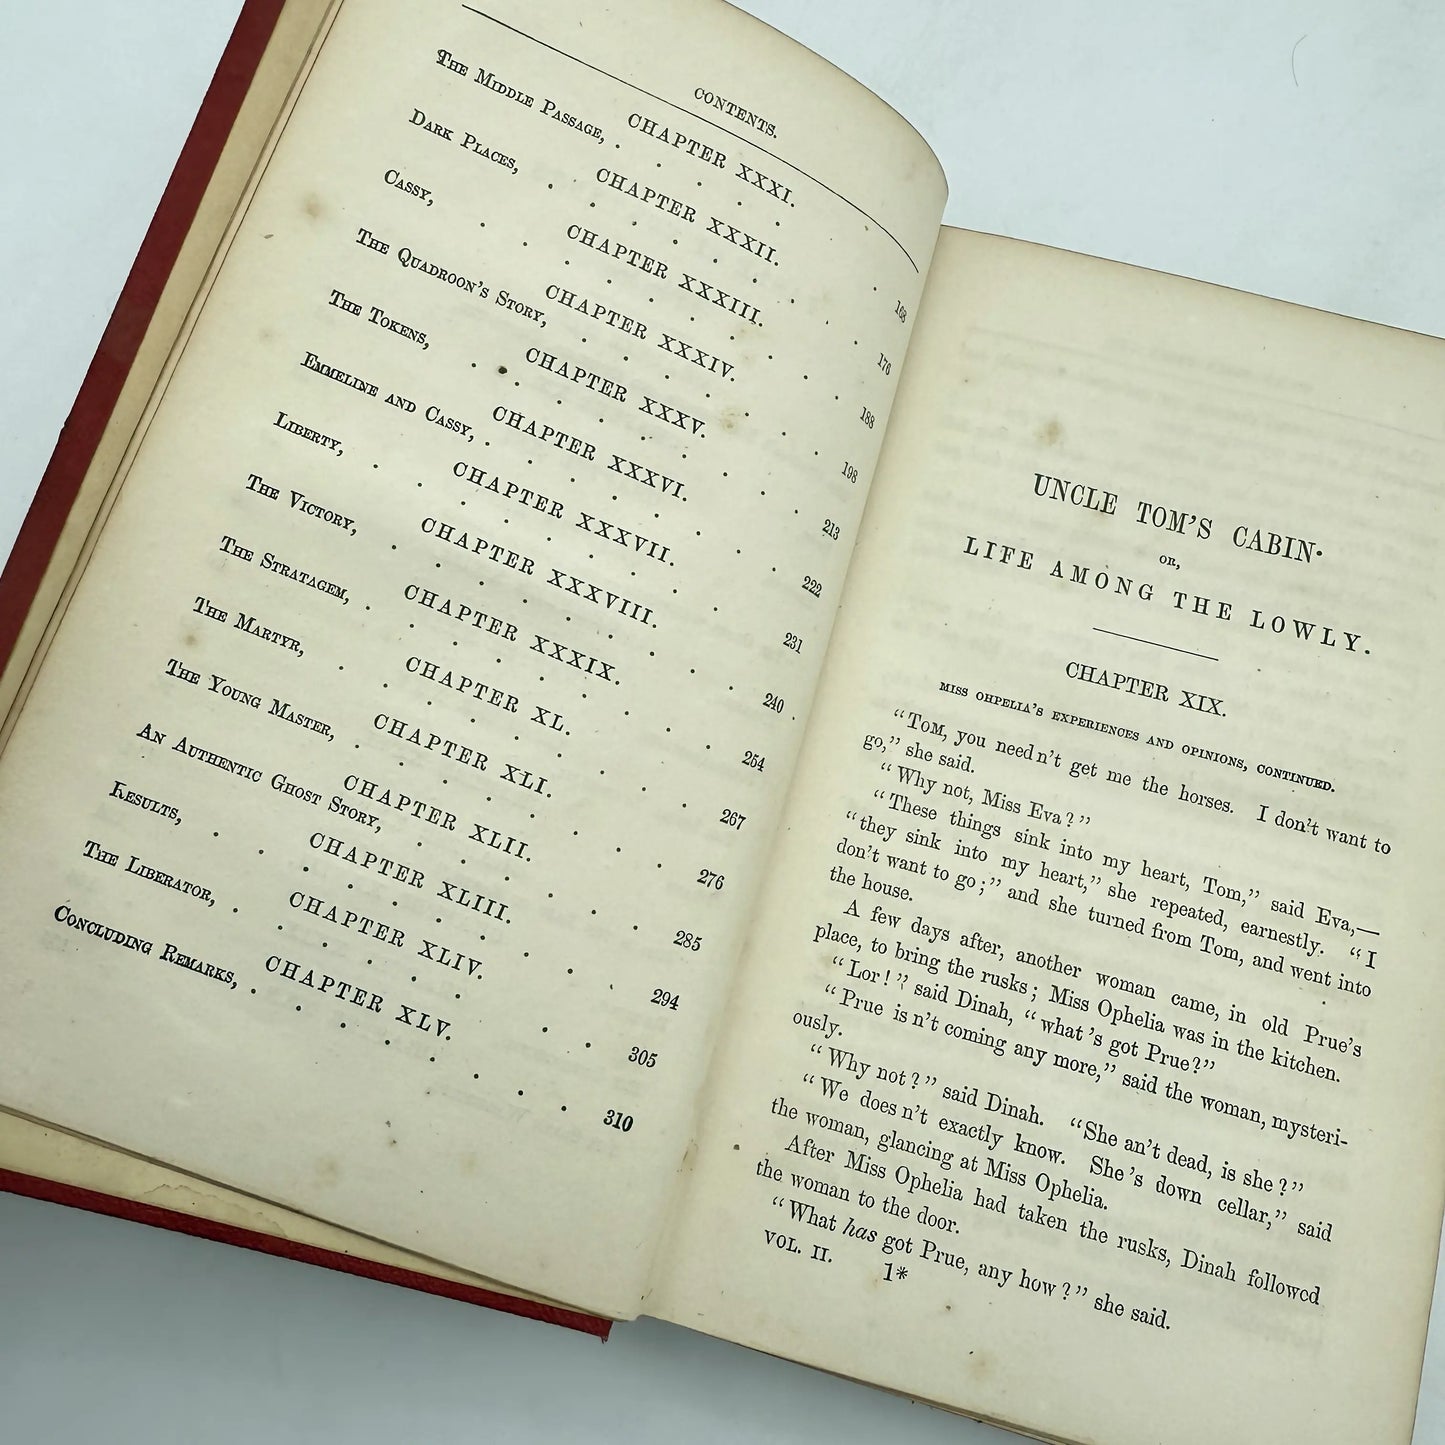 CONTENTS.
CHAPTER XXXI.
THE MIDDLE PASSAGE, . . . . . . 168
CHAPTER XXXII.
DARK PLACES, . . . . . . 176
CHAPTER XXXIII.
CASSY, . . . . . . 188
CHAPTER XXXIV.
THE QUADROON'S STORY, . . . . . . 198
CHAPTER XXXV.
THE TOKENS, . . . . . . 213
CHAPTER XXXVI.
EMMELINE AND CASSY, . . . . . . 222
CHAPTER XXXVII.
LIBERTY, . . . . . . 231
CHAPTER XXXVIII.
THE VICTORY, . . . . . . 240
CHAPTER XXXIX.
THE STRATAGEM, . . . . . . 254
CHAPTER XL.
THE MARTYR, . . . . . . 267
CHAPTER XLI.
THE YOUNG MASTER, . . . . . . 276
CHAPTER XLII.
AN AUTHENTIC GHOST STORY, . . . . . . 285
CHAPTER XLIII.
RESULTS, . . . . . . 294
CHAPTER XLIV.
THE LIBERATOR, . . . . . . 305
CHAPTER XLV.
CONCLUDING REMARKS, . . . . . . 310
UNCLE TOM'S CABIN.
OR,
LIFE AMONG THE LOWLY.
CHAPTER XIX.
MISS OHPELIA'S EXPERIENCES AND OPINIONS, CONTINUED.
"TOM, you need n't get me the horses. I don't want to
go," she said.
"Why not, Miss Eva?"
"These things sink into my heart, Tom," said Eva,—
"they sink into my heart," she repeated, earnestly. "I
don't want to go;" and she turned from Tom, and went into
the house.
A few days after, another woman came, in old Prue's
place, to bring the rusks; Miss Ophelia was in the kitchen.
"Lor!" said Dinah, "what 's got Prue?"
"Prue is n't coming any more," said the woman, mysteri-
ously.
"Why not?" said Dinah. "She an't dead, is she?"
"We does n't exactly know. She 's down cellar," said
the woman, glancing at Miss Ophelia.
After Miss Ophelia had taken the rusks, Dinah followed
the woman to the door.
"What has got Prue, any how?" she said.
VOL. II. 1*